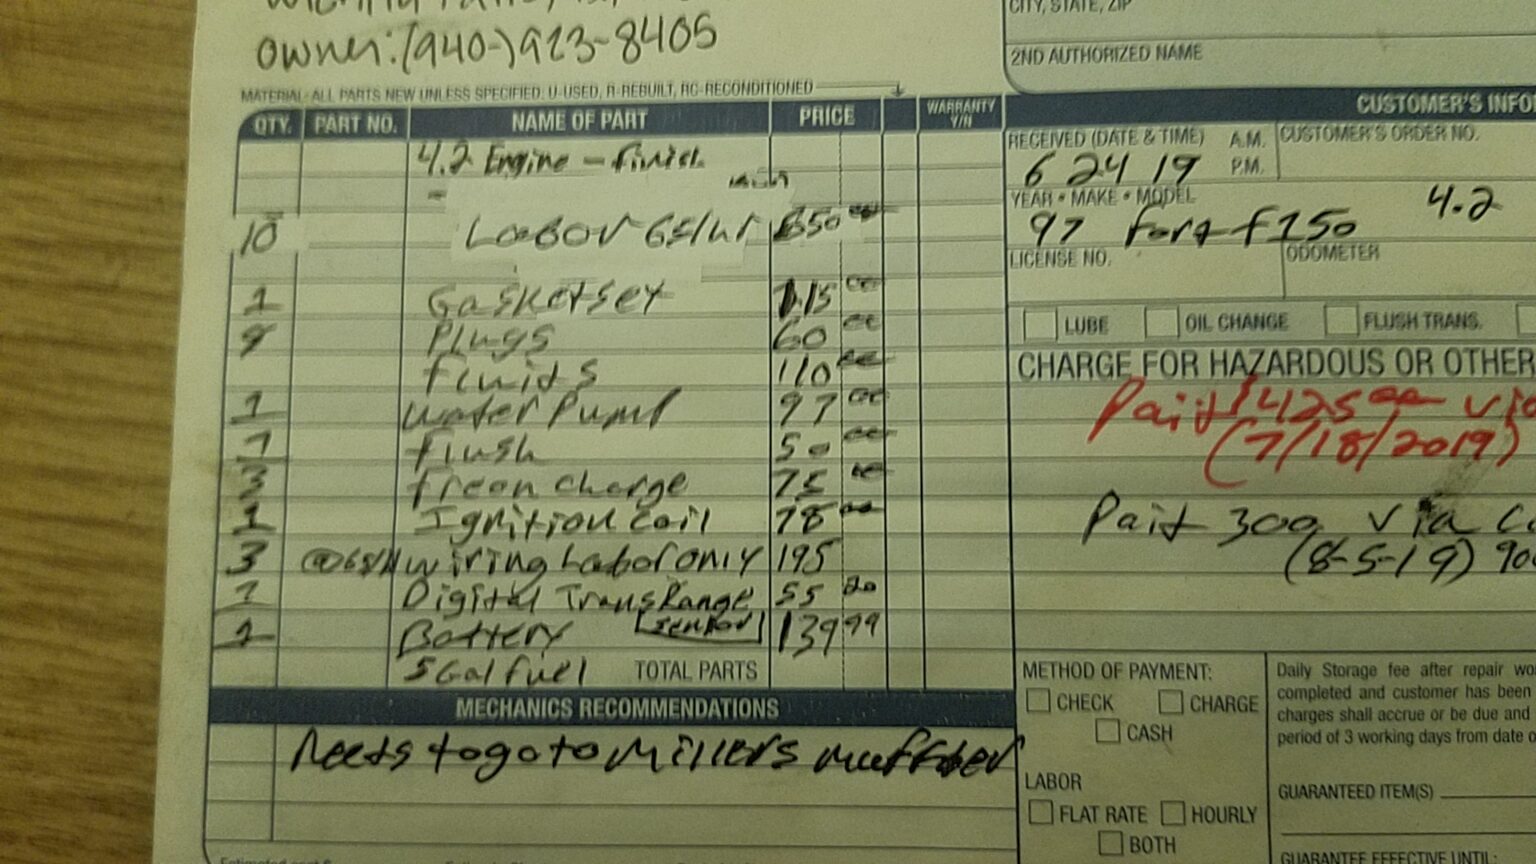 owner: (940-)923-8405
MATERIAL-ALL PARTS NEW UNLESS SPECIFIED, U-USED, R-REBUILT, RC-RECONDITIONED
QTY. PART NO. NAME OF PART PRICE WARRANTY Y/N
4.2 Engine - finish
10 Labor 65/hr 650 00
1 Gasketset 115 00
Plugs 60 00
fluids 110 00
1 water Pump 97 00
1 flush 50 00
3 freon charge 75 00
1 Ignition Coil 78 00
3 @65/H wiring Labor only 195
1 Digital Trans Range 55
1 Battery 139 99
5 Gal fuel TOTAL PARTS
MECHANICS RECOMMENDATIONS
needs to go to Millers muffler
CITY, STATE, ZIP
2ND AUTHORIZED NAME
CUSTOMER'S INFO
RECEIVED (DATE & TIME) A.M. P.M. CUSTOMER'S ORDER NO.
6 24 19
YEAR • MAKE • MODEL
97 ford f150 4.2
LICENSE NO. ODOMETER
LUBE OIL CHANGE FLUSH TRANS.
CHARGE FOR HAZARDOUS OR OTHER
Paid $425 00 via
(7/18/2019)
Paid 300 via
(8-5-19)
METHOD OF PAYMENT:
CHECK CHARGE
CASH
LABOR
FLAT RATE HOURLY
BOTH
Daily Storage fee after repair
completed and customer has been
charges shall accrue or be due and
period of 3 working days from date
GUARANTEED ITEM(S)
GUARANTEE EFFECTIVE UNTIL: